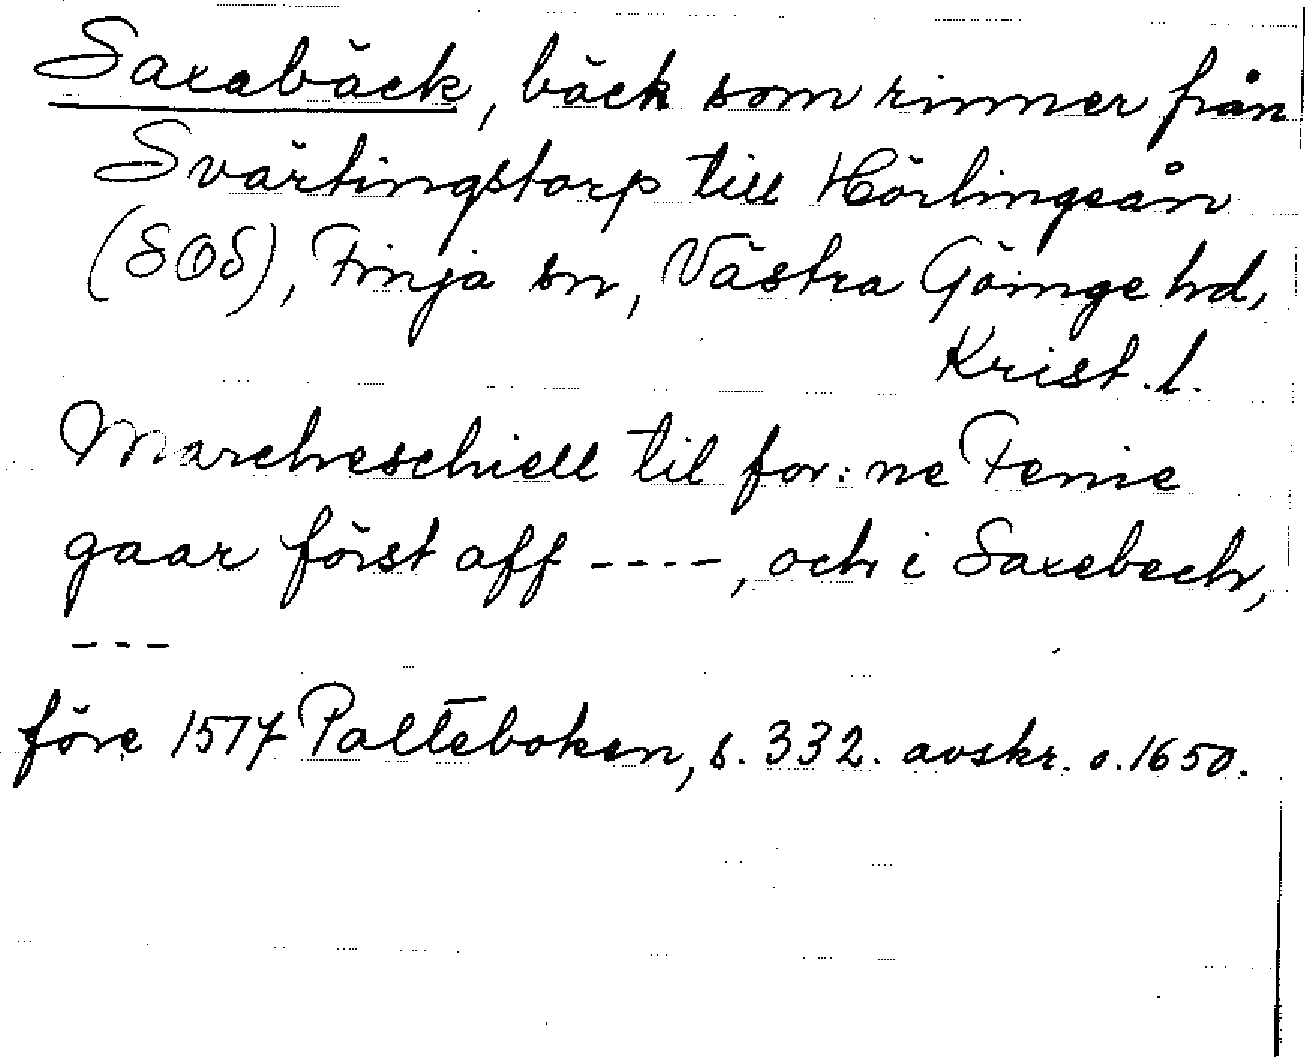 Saxabäck, bäck som rinner från
Svärtingstorp till Hörlingeån
(SOS), Finja sn, Västra Göinge hd,
Krist. l.
Marcheschiell til for:ne Fenie
gaar först aff ----, och i Saxebech,
---
före 1517 Palteboken, s. 332. avskr. o. 1650.